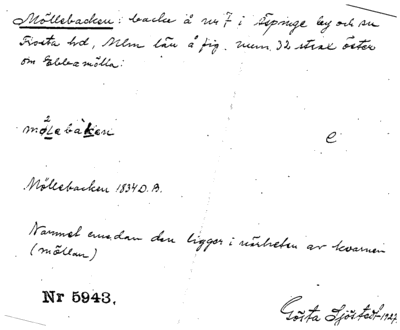 Möllebacken: backe å nr 7 i Äspinge by och sn
Frosta hd, Mlm län å fig. num. 32 strax öster
om Ebbamölla:
mölebàken
e
Möllebacken 1834 D.B.
Namnet emedan den ligger i närheten av kvarnen
(möllan)
Nr 5943.
Gösta Sjöstedt 1927